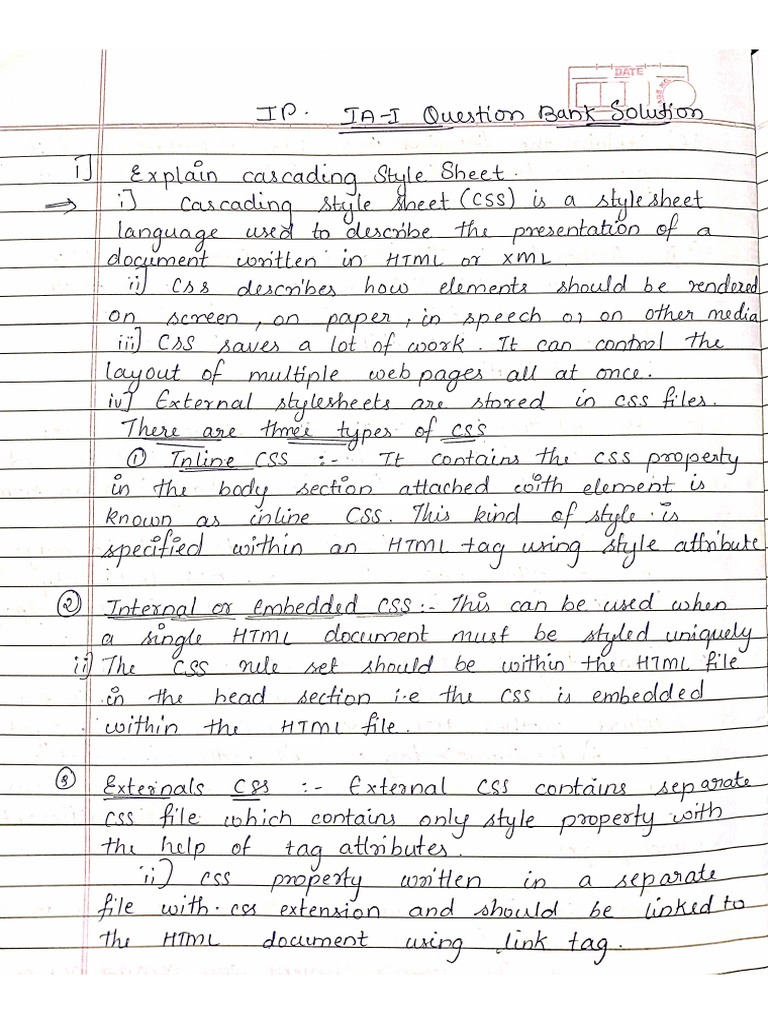 DATE
IP. IA-I Question Bank Solution
1] Explain cascading Style Sheet.
⇒ i] Cascading style sheet (CSS) is a stylesheet
language used to describe the presentation of a
document written in HTML or XML
ii] CSS describes how elements should be rendered
on screen, on paper, in speech or on other media
iii] CSS saves a lot of work. It can control the
layout of multiple web pages all at once.
iv] External stylesheets are stored in css files.
There are three types of CSS
① Inline CSS :- It contains the CSS property
in the body section attached with element is
known as inline CSS. This kind of style is
specified within an HTML tag using style attribute
② Internal or embedded CSS:- This can be used when
a single HTML document must be styled uniquely
ii] The CSS rule set should be within the HTML file
in the head section i.e the CSS is embedded
within the HTML file.
③ Externals CSS :- External CSS contains separate
CSS file which contains only style property with
the help of tag attributes.
ii) CSS property written in a separate
file with .css extension and should be linked to
the HTML document using link tag.